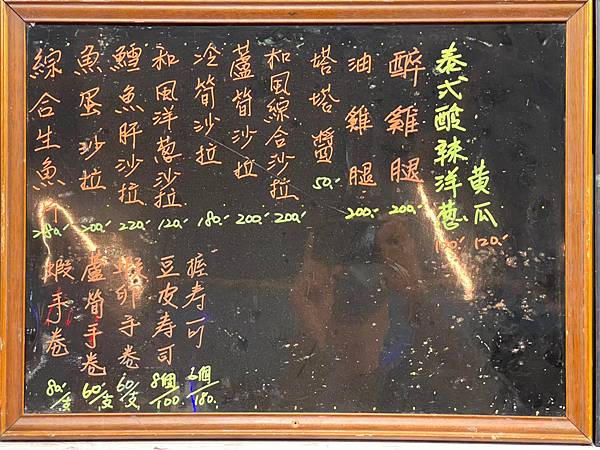 黃瓜 120.-
泰式酸辣洋蔥
醉雞腿 200.-
油雞腿 200.-
塔塔醬 50.-
和風綜合沙拉 200.-
蘆筍沙拉 200.-
冷筍沙拉 180.-
和風洋蔥沙拉 120.-
鱈魚肝沙拉 220.-
魚蛋沙拉 200.-
綜合生魚片 280.-
握寿司 6個/180.
豆皮寿司 8個/100.
蝦卵手卷 60/支
蘆筍手卷 60/支
蝦手卷 80/支